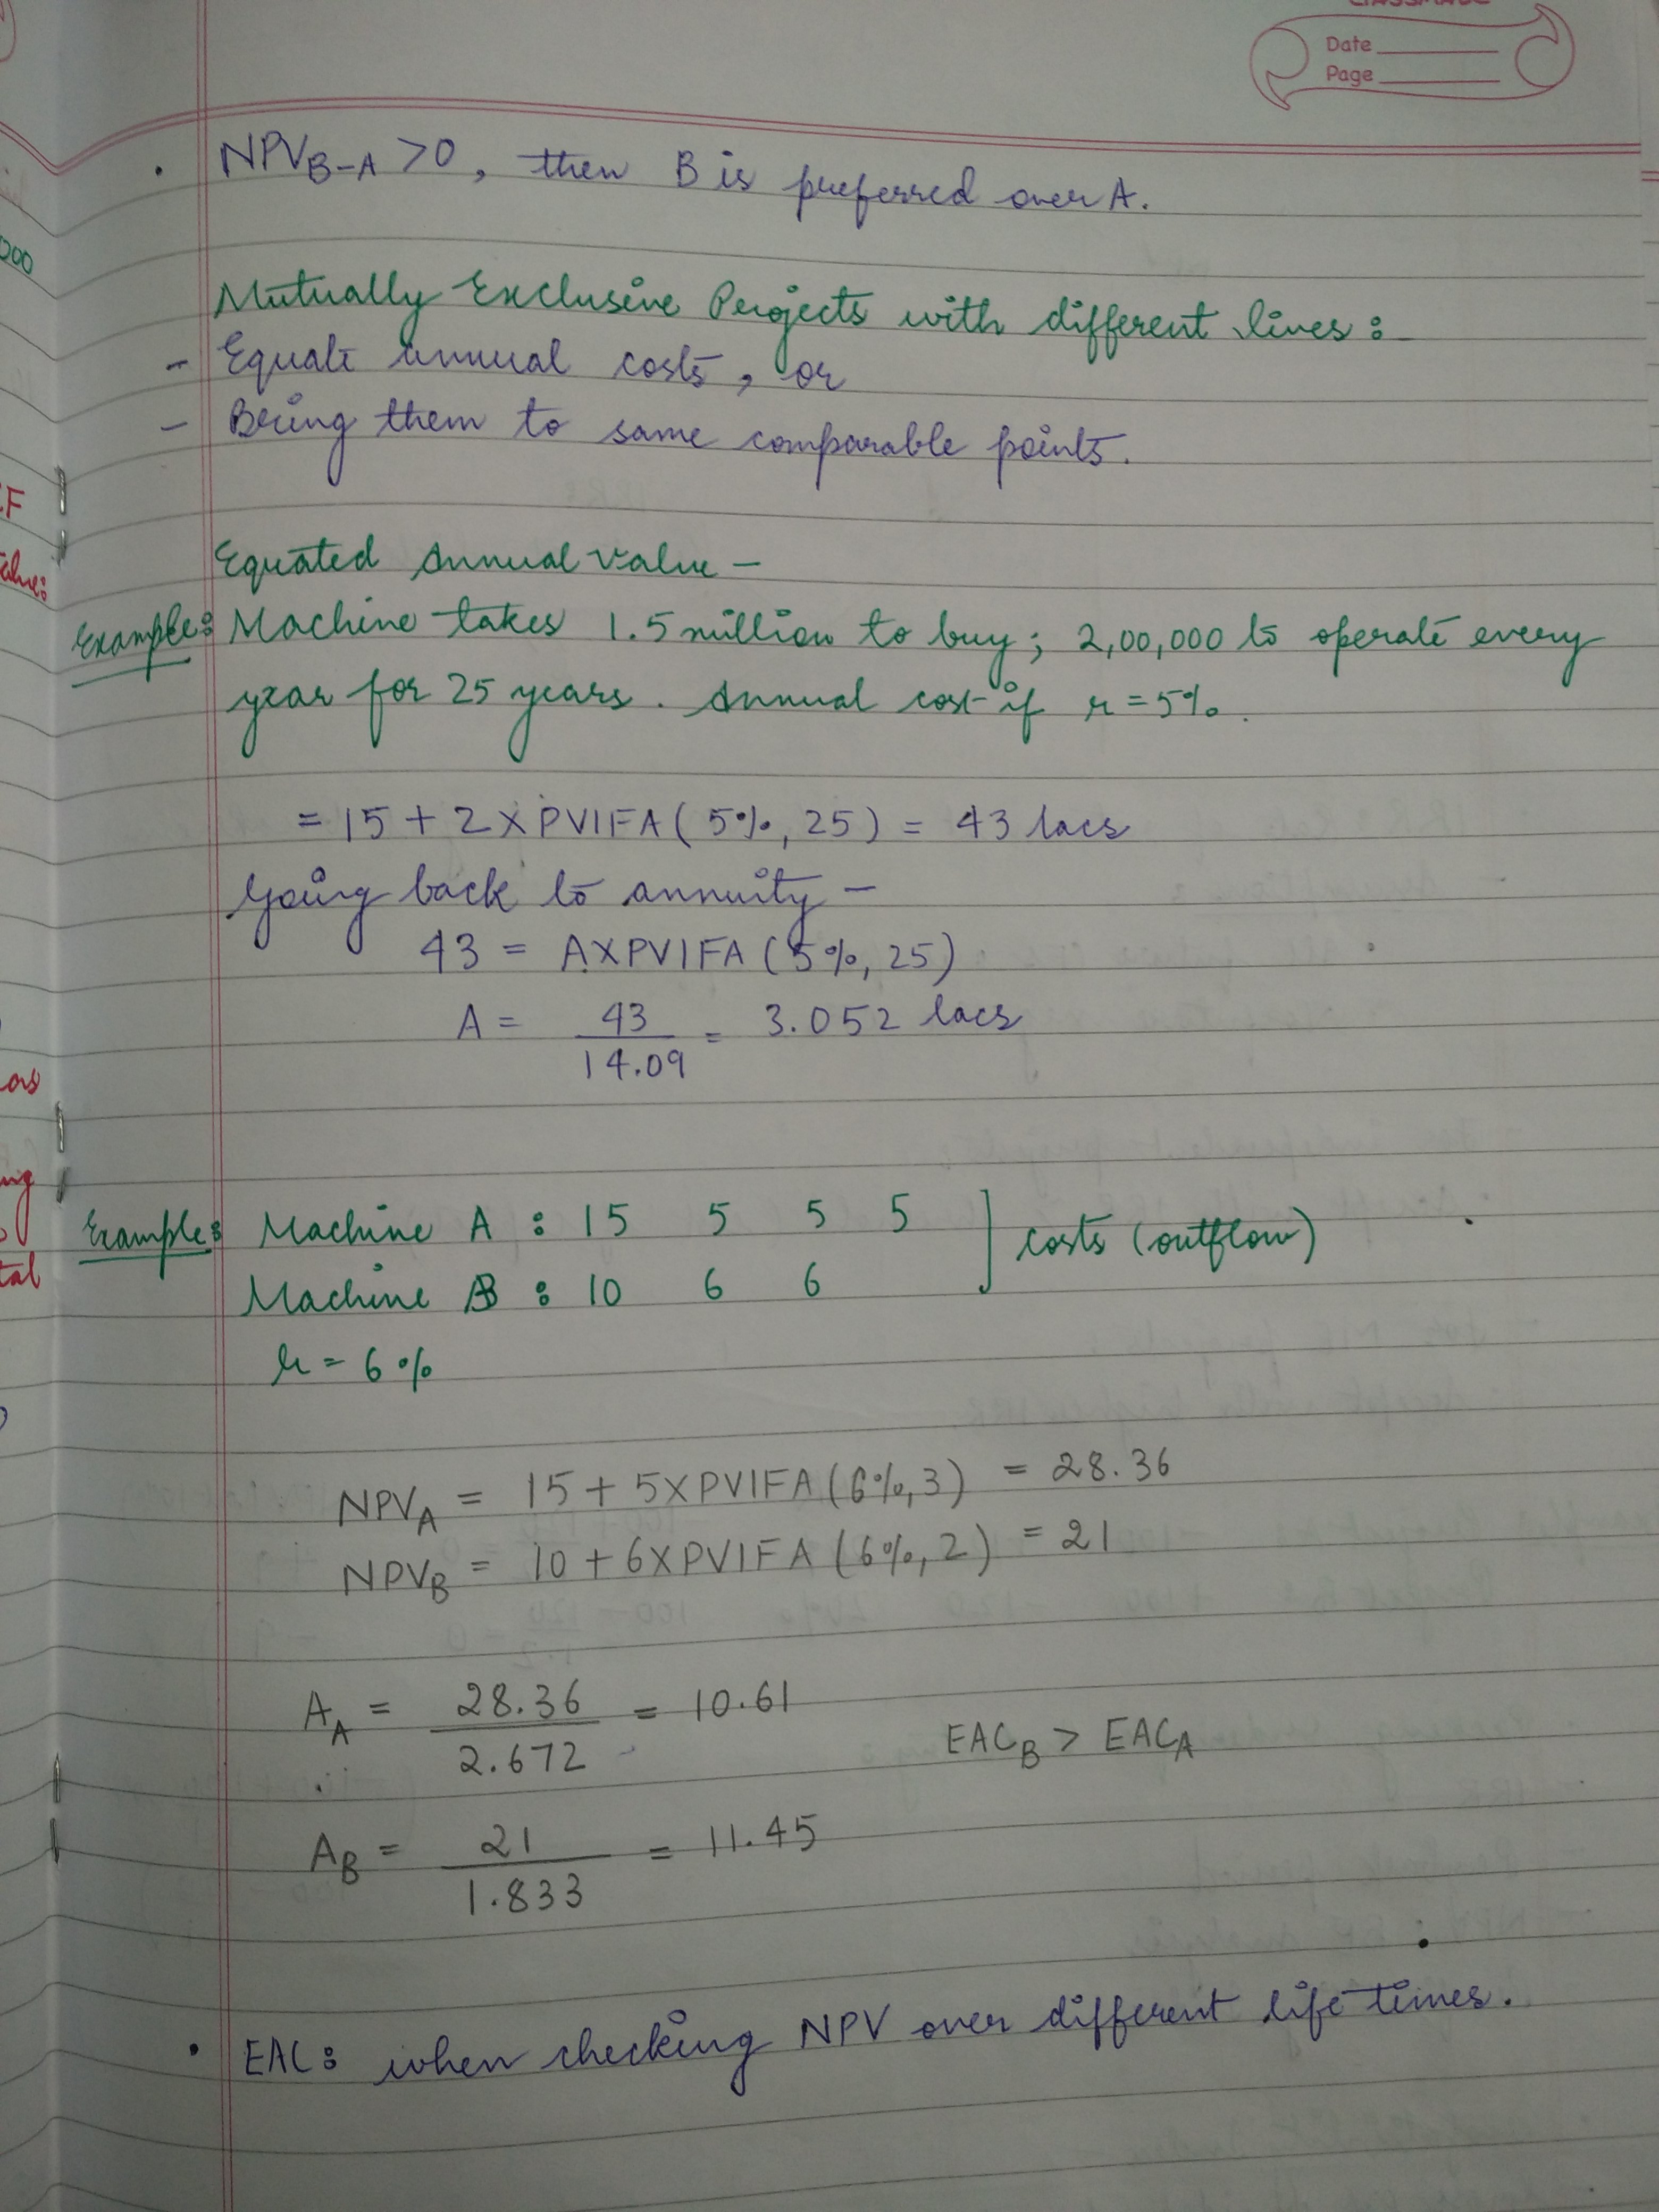 CLASSMATE
Date
Page
• NPV_B-A >0, then B is preferred over A.
Mutually Exclusive Projects with different lives:
- Equate annual costs, or
- Bring them to same comparable points.
Equated Annual Value -
Example: Machine takes 1.5 million to buy; 2,00,000 to operate every
year for 25 years. Annual cost if r = 5%.
= 15 + 2 X PVIFA (5%, 25) = 43 lacs
Going back to annuity -
43 = A X PVIFA (5%, 25)
A = 43/14.09 = 3.052 lacs
Example: Machine A : 15 5 5 5 ] costs (outflow)
Machine B : 10 6 6
r = 6%
NPV_A = 15 + 5 X PVIFA (6%, 3) = 28.36
NPV_B = 10 + 6 X PVIFA (6%, 2) = 21
A_A = 28.36/2.672 = 10.61
EAC_B > EAC_A
A_B = 21/1.833 = 11.45
• EAC: when checking NPV over different life times.